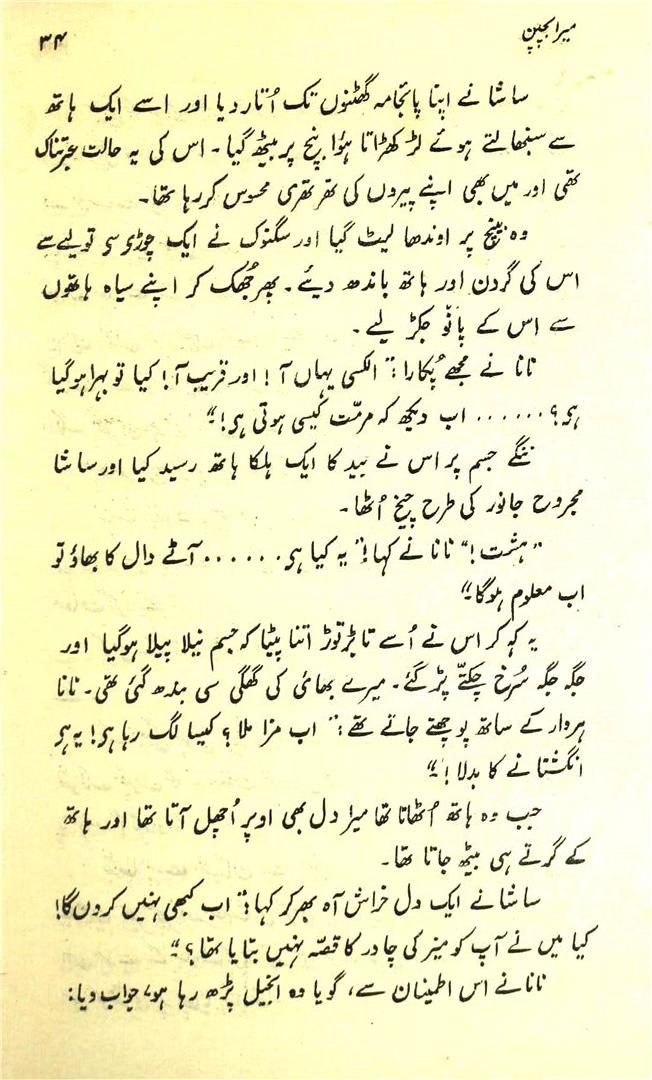 میرا بچپن
۳۴
ساشا نے اپنا پائجامہ گھٹنوں تک اُتار دیا اور اسے ایک ہاتھ
سے سنبھالتے ہوئے لڑکھڑاتا ہؤا بنچ پر بیٹھ گیا۔ اس کی یہ حالت عبرتناک
تھی اور میں بھی اپنے پیروں کی تھرتھری محسوس کر رہا تھا۔
وہ بینچ پر اوندھا لیٹ گیا اور سگنوک نے ایک چوڑی سی تولیے سے
اس کی گردن اور ہاتھ باندھ دیئے۔ پھر جُھک کر اپنے سیاہ ہاتھوں
سے اس کے پانؤ جکڑ لیے۔
نانا نے مجھے پُکارا: "الکسی یہاں آ! اور قریب آ! کیا تو بہرا ہو گیا
ہی؟ ...... اب دیکھ کہ مرمّت کیسی ہوتی ہی!"
ننگے جسم پر اس نے بید کا ایک ہلکا ہاتھ رسید کیا اور ساشا
مجروح جانور کی طرح چیخ اُٹھا۔
"ہشت!" نانا نے کہا! "یہ کیا ہی ...... آٹے دال کا بھاؤ تو
اب معلوم ہوگا۔"
یہ کہ کر اس نے اُسے تابڑتوڑ اتنا پیٹا کہ جسم نیلا پیلا ہوگیا اور
جگہ جگہ سُرخ چکتّے پڑ گئے۔ میرے بھائی کی گھگی سی بندھ گئی تھی۔ نانا
ہروار کے ساتھ پوچھتے جاتے تھے: "اب مزا ملا؟ کیسا لگ رہا ہی! یہ ہی
انگشتانے کا بدلا!"
جب وہ ہاتھ اُٹھاتا تھا میرا دل بھی اوپر اُچھل آتا تھا اور ہاتھ
کے گرتے ہی بیٹھ جاتا تھا۔
ساشا نے ایک دل خراش آہ بھر کر کہا: "اب کبھی نہیں کروں گا!
کیا میں نے آپ کو میز کی چادر کا قصّہ نہیں بتایا تھا؟"
نانا نے اس اطمینان سے، گویا وہ انجیل پڑھ رہا ہو، جواب دیا: